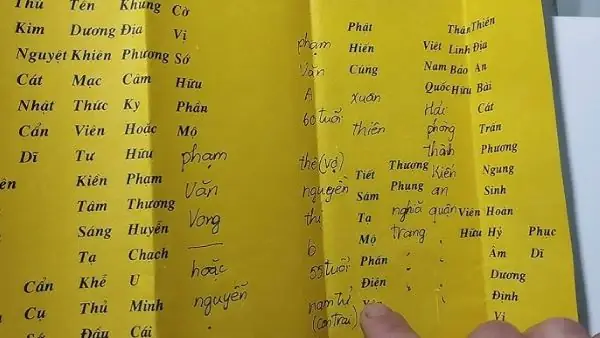 Phục Dĩ
Thiên Địa An Bài Cát Trần Phương Ngung Sinh Hoàn Hý Âm Dương Định Vị
Thần Linh Bảo Hữu Viên Hữu
Việt Nam Quốc Hải phòng thành Kiến an quận
Thương Phung nghĩa trang
Phật Hiến Cúng xuân thiên Tiết Sám Tạ Mộ Phần Điện
phạm Văn A 60 tuổi thê (vợ) nguyễn thị b 55 tuổi nam tử (con trai)
Cờ Vị Sớ Hữu Phần Mộ phạm Văn Vong — hoặc nguyễn
Khung Địa Phương Cảm Ky Hoặc Hữu Phạm Thương Huyền Chạch U Minh Cái
Tên Dương Khiên Mạc Thức Viên Tư Kiến Tâm Sáng Tạ Khể Thủ Đầu
Thu Kim Nguyệt Cát Nhật Cẩn Dĩ
Cẩn Cụ